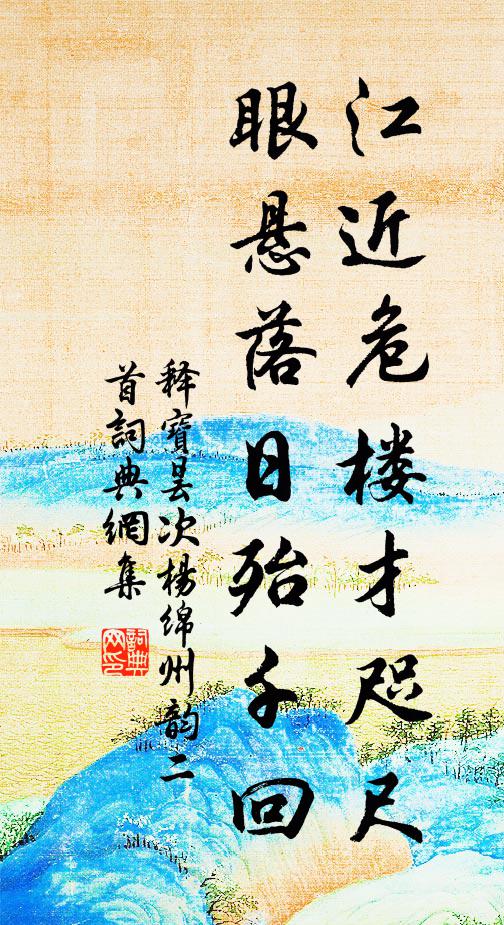 江近危楼才咫尺
眼悬落日殆千回
释寶昙次楊绵州韵二
首詞典網集
詞典
网印